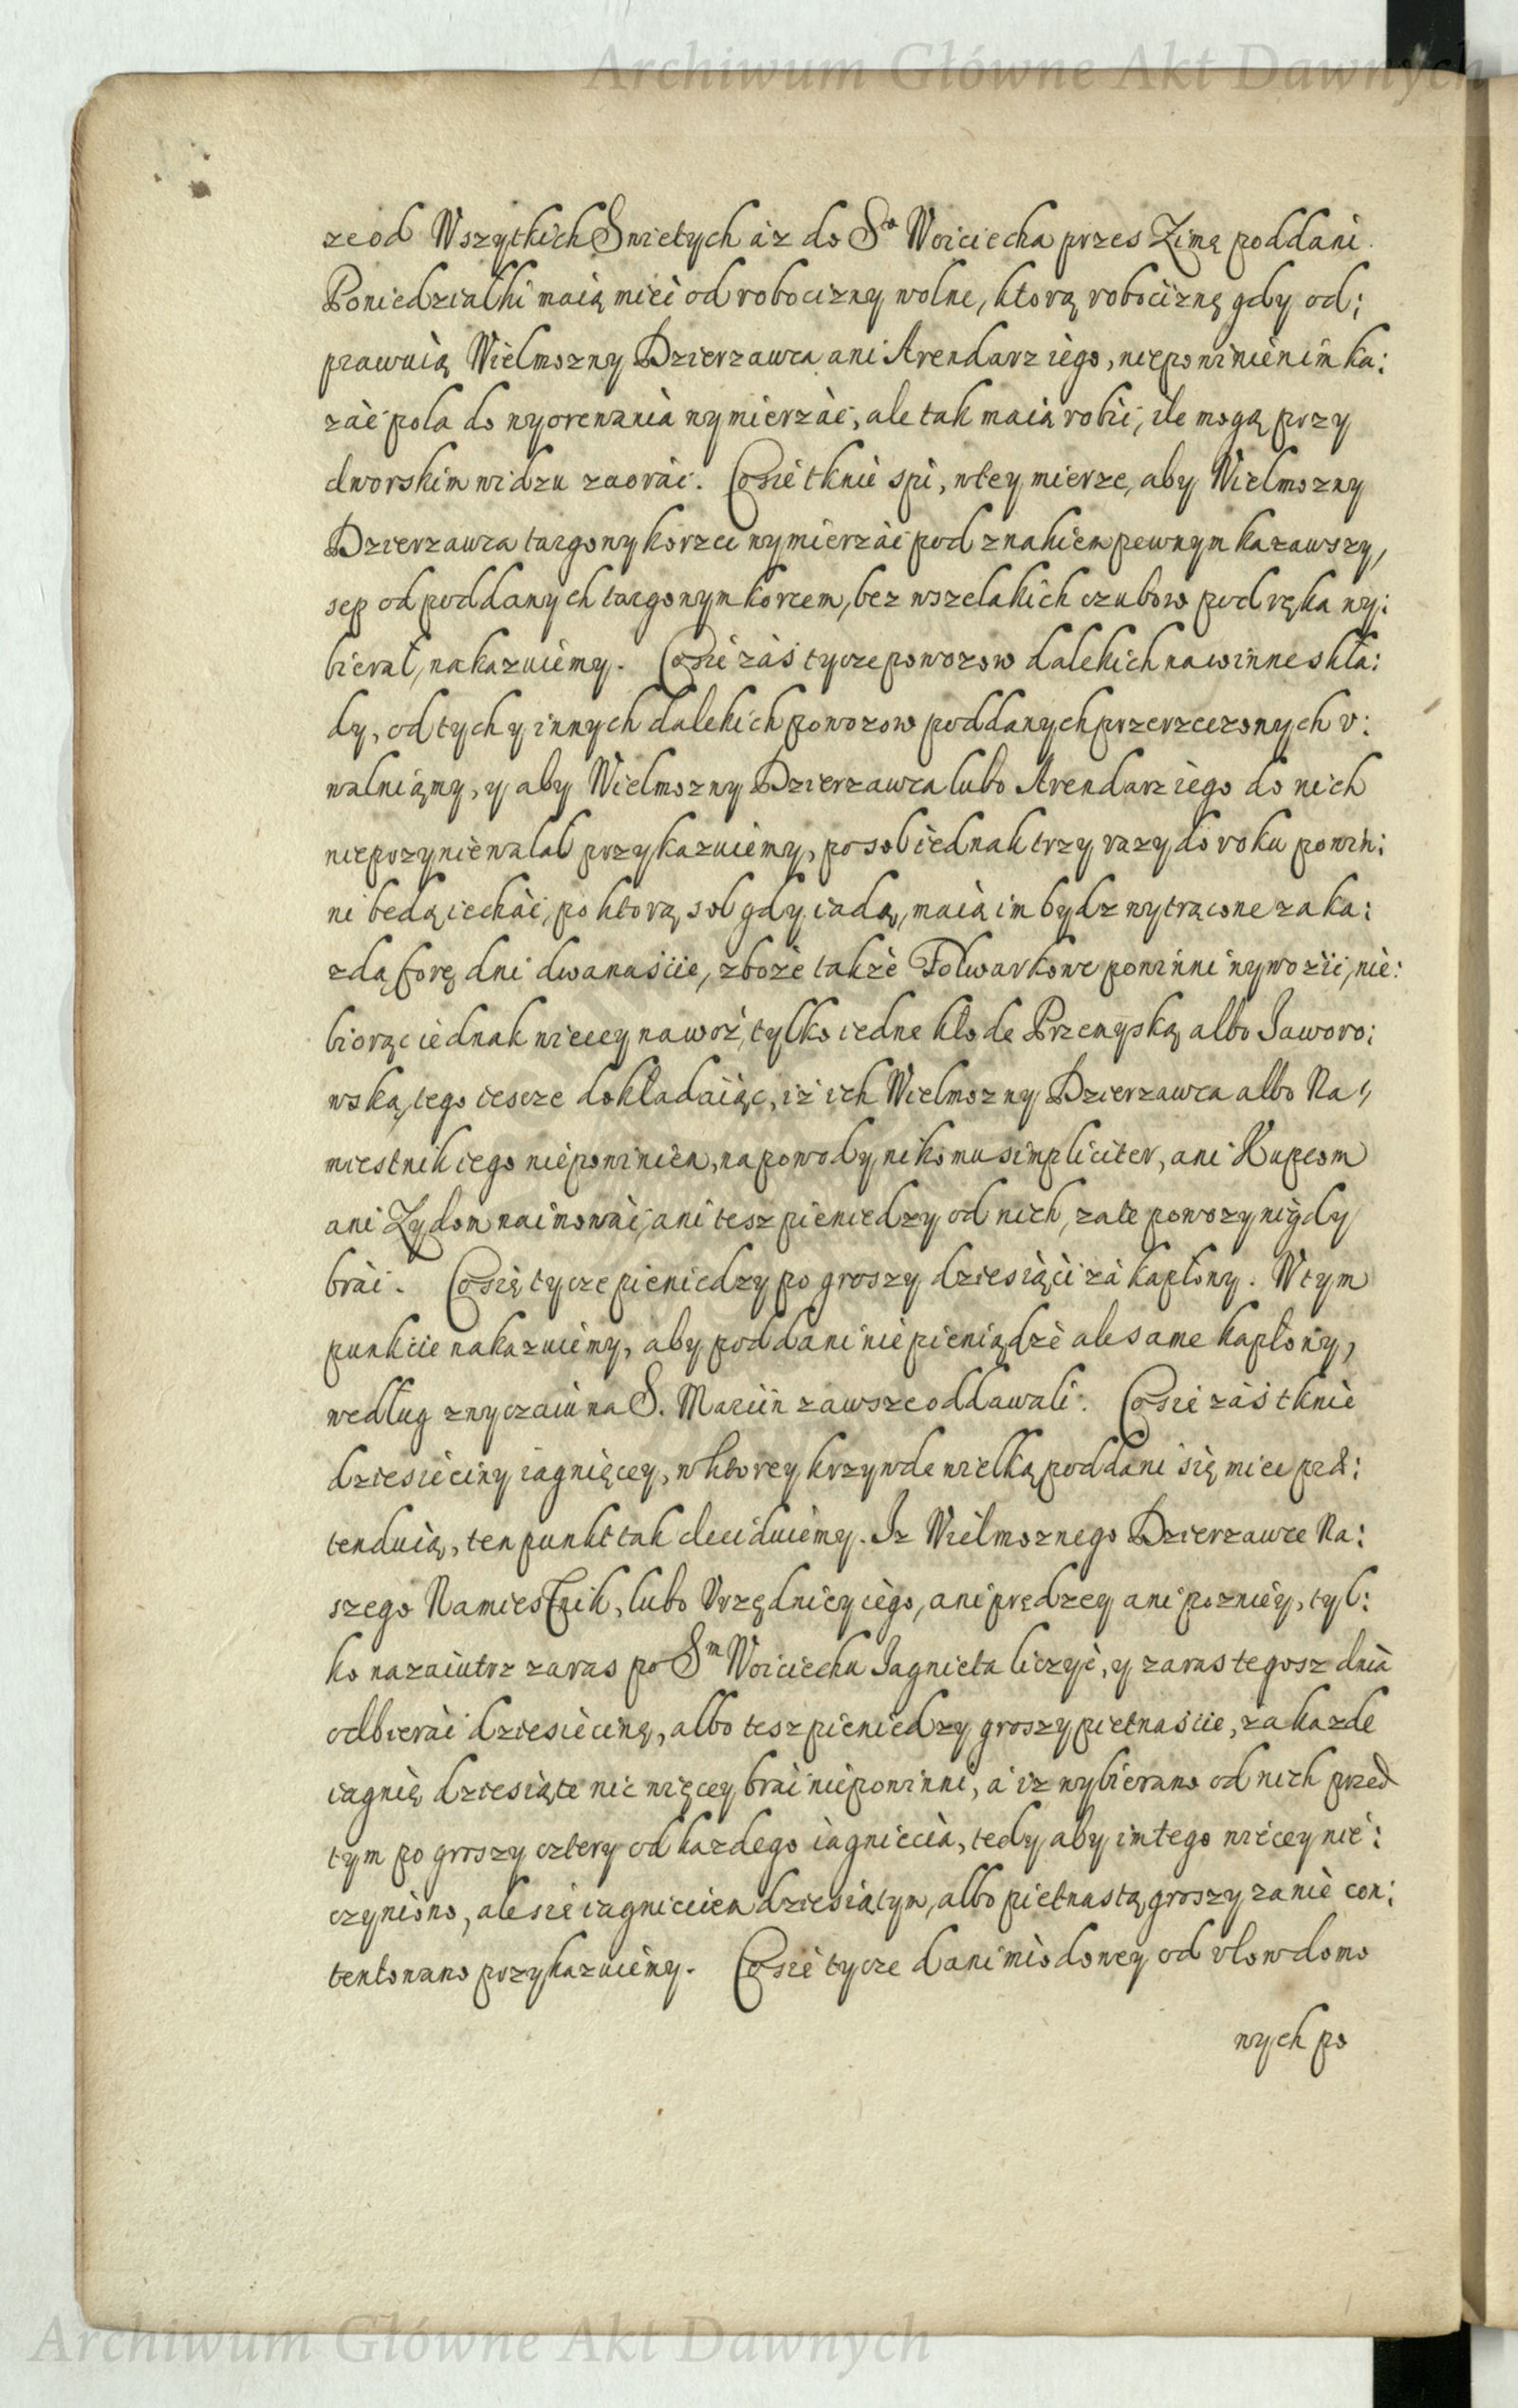 Archiwum Główne Akt Dawnych
ze od Wszytkich Swietych áz do S^to Woiciecha przes Zimę poddani
Poniedziałki maią mieć od robocizny wolne, ktorą robociznę gdy od:
prawuią Wielmozny Dzierzawca ani Arendarz iego, niepowinien im ka:
záć pola do wyorewania wymierzáć, ale tak maią robić, ile mogą przy
dworskim widzu zaoráć. Co sie tknie spi, w tey mierze, aby Wielmozny
Dzierzawca targowy korzec wymierzáć pod znakiem pewnym kazawszy,
sep od poddanych targowym korcem, bez wszelakich czubow pod ręką wy:
bierał, nakazuiemy. Co sie záś tycze powozow dalekich na winne skła:
dy, od tych y innych dalekich powozow poddanych przerzeczonych v:
walniamy, y aby Wielmozny Dzierzawca lubo Arendarz iego do nich
nieprzyniewalał przykazuiemy, po sol iednak trzy razy do roku powin:
ni będą iecháć, po ktorą sol gdy iadą, maią im bydz wytrącone za ka:
zdą forę dni dwanaście, zboże także Folwarkowe powinni wywozić, nie:
biorąc iednak wiecey na woż, tylko iedne kłode Przemyską albo Jaworo:
wską, tego iescze dokładaiąc, iż ich Wielmozny Dzierzawca albo Na:
miestnik iego niepowinien, na powody nikomu simpliciter, ani Kupcom
ani Zydom naimować, ani tesz pieniedzy od nich, za te powozy nigdy
bráć. Co się tycze pieniedzy po groszy dziesiąci zá kapłony. W tym
punkcie nakazuiemy, aby poddani nie pieniądze ale same kapłony,
według zwyczaiu na S. Marcin zawsze oddawali. Co sie záś tknie
dziesieciny iagnięcey, w ktorey krzywde wielką poddani się miec præ:
tenduią, ten punkt tak deciduiemy. Iz Wielmoznego Dzierzawce Na:
szego Namiestnik, lubo Vrzędnicy iego, ani prędzey ani pozniey, tyl:
ko nazaiutrz zaras po S^m Woiciechu Jagnieta liczyć, y zaras tegosz dnia
odbieráć dziesiecinę, albo tesz pieniedzy groszy pietnaście, za kazde
iagnię dziesiąte nic więcey bráć niepowinni, á iz wybierano od nich przed
tym po groszy cztery od kazdego iagniecia, tedy aby im tego wiecey nie:
czyniono, ale sie iagnieciem dziesiątym, albo pietnastą groszy za nie con:
tentowano przykazuiemy. Co sie tycze dani miodowey od vlow domo
wych po
Archiwum Główne Akt Dawnych